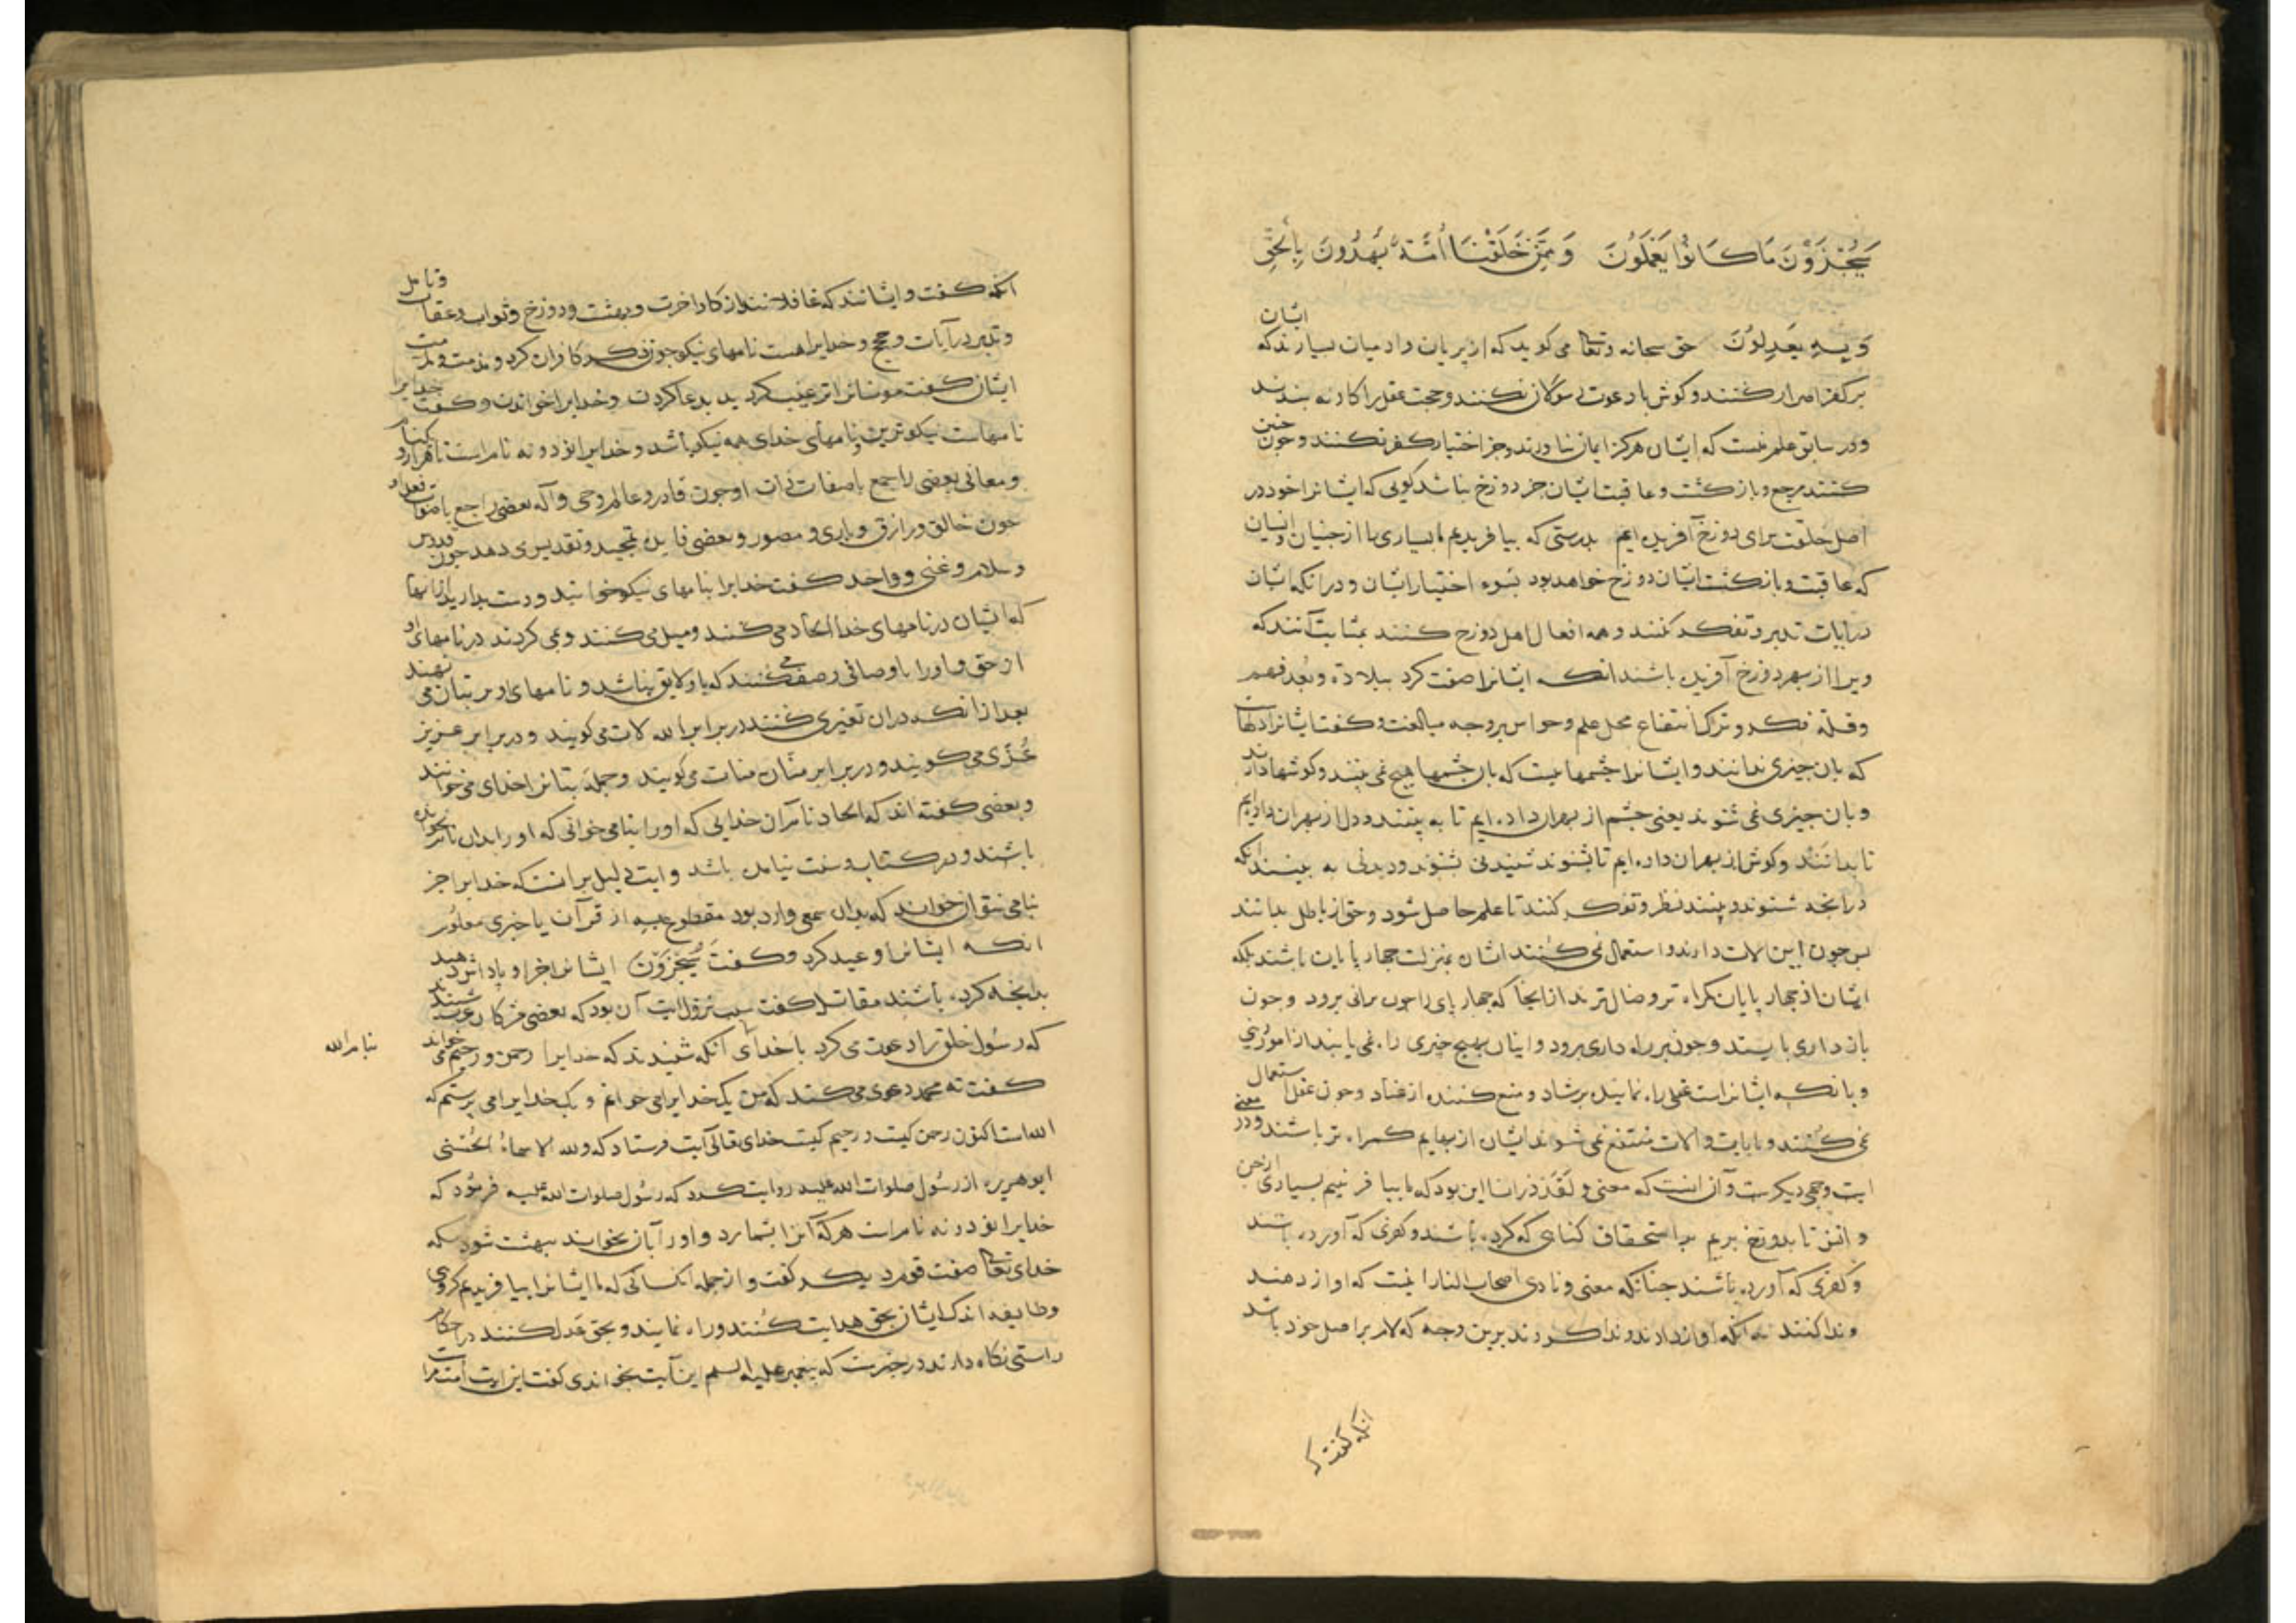 سَيُجْزَوْنَ مَا كَانُوا يَعْمَلُونَ وَمِمَّنْ خَلَقْنَا أُمَّةٌ يَهْدُونَ بِالْحَقِّ
وَبِهِ يَعْدِلُونَ حق سبحانه وتعالی می کوید که از پریان وادمیان بسیارند که ایشان
بر کفر اصرار کنند و کوش با دعوت رسولان نکنند و حجت عقل را کار نه بندند
ودر سابق علم هست که ایشان هرکز ایمان نیاورند وجز اختیار کفر نکنند وجون جنین
کنند مرجع وبازکشت وعاقبت ایشان جز دوزخ نباشد کویی که ایشانرا خود در
اصل خلقت برای دوزخ آفریده ایم بدرستی که بیافریدیم ما بسیاری را از جنیان وانسیان
که عاقبت وبازکشت ایشان دوزخ خواهد بود بسوء اختیار ایشان ودر آنکه ایشان
در آیات تدبر وتفکر نکنند وهمه افعال اهل دوزخ کنند بمثابت آنند که
ویرا از بهر دوزخ آفریده باشند انکه ایشانرا صفت کرد ببلادة وبعد فهم
وقلة فکر وترک انتفاع محل علم وحواس بر وجه مبالغت وکفت ایشانرا دلهاست
که بان جیزی ندانند وایشانرا جشمهاست که بان جشمها هیج نمی بینند وکوشها دارند
وبان جیزی نمی شنوند یعنی جشم از بهر آن داده ایم تا به بینند ودل از بهر آن داده ایم
تا بدانند وکوش از بهر آن داده ایم تا بشنوند شنیدنی شنوند ودیدنی به بینند آنکه
در آنجه شنوند وبینند نظر وتفکر کنند تا علم حاصل شود وحق از باطل بدانند
بس جون این آلات دارند واستعمال نمی کنند ایشان بمنزلت جهار پایان باشند بلکه
ایشان از جهار پایان کمراه تر وضال ترند از انجا که جهار پای را جون برانی برود وجون
باز داری بایستد وجون بر راه داری برود واینان بهیج جیزی راه نمی یابند از امور دینی
وبا آنکه ایشانراست عقلی راه نماینده برشاد ومنع کننده از فساد وجون عقل استعمال
نمی کنند وبآیات وآلات منتفع نمی شوند ایشان از بهایم کمراه تر باشند ودر معنی
آیت وجهی دیکرست وآن آنست که معنی ولقد ذرانا این بود که ما بیافرینیم بسیاری از جن
وانس تا بدوزخ بریم باستحقاق کناهی که کرده باشند وکفری که آورده باشند
وکفری که آورده باشند جنانکه معنی ونادی اصحاب النار اینست که اواز دهند
وندا کنند نه آنکه اواز دادند وندا کردند برین وجه که لام بر اصل خود باشد
انکه کفت
انکه کفت وایشانند که غافلانند از کار اخرت وبهشت ودوزخ وثواب وعقاب وتامل
وتدبر در آیات وحجج وخدایراهست نامهای نیکو جون ذکر کافران کرد ومذمت وملامت
ایشان کفت مومنانرا ترغیب کرد بدعا کردن وخدایرا خواندن وکفت خدایرا
نامهاست نیکوترین ونامهای خدای همه نیکو باشد وخدایرا نود ونه نام است
ومعانی بعضی راجع باصفات ذات او جون قادر وعالم وحی وآله بعضی راجع با صفات فعل او
جون خالق ورازق وباری ومصور وبعضی فایده تمجید وتقدیس دهد جون قدوس
وسلام وغنی وواحد کفت خدایرا بنامهای نیکو خوانید ودست بدارید آنانرا
که ایشان در نامهای خدا الحاد می کنند ومیل می کنند ومی کردند در نامهای او
از حق واورا باوصافی وصف می کنند که باو لایق نباشد ونامهای او بر بتان می نهند
بعد از انکه در ان تغیری کنند در برابر الله لات می کویند ودر برابر عزیز
عُزّی می کویند ودر برابر منّان منات می کویند وجمله بتانرا خدای می خوانند
وبعضی کفته اند که الحاد نام آن خدایی که اورا بنامی خوانی که اورا بدان نام نخوانده
باشند ودر کتاب وسنت نیامده باشد وآیت دلیل بر انست که خدایرا جز
بنامی نتوان خواند که بدان سمعی وارد بود مقطوع علیه از قرآن یا خبری معلوم
انکه ایشانرا وعید کرد وکفت سَيُجْزَوْنَ ایشانرا جزا وپاداش دهند
بدانجه کرده باشند مقاتل کفت سبب نزول آیت آن بود که بعضی مشرکان عرب شنیدند
که رسول خلق را دعوت می کرد با خدای آنکه شنیدند که خدایرا رحمن ورحیم می خواند
بنام الله
کفت نه محمد دعوی می کند که من یک خدایرا می خوانم ویک خدایرا می پرستم که
الله است اکنون رحمن کیست ورحیم کیست خدای تعالی آیت فرستاد که ولله الاسماءُ الحُسنی
ابوهریره از رسول صلوات الله علیه روایت کرد که رسول صلوات الله علیه فرمود که
خدایرا نود ونه نام است هر که آنرا بشمارد واورا بآن بخواند ببهشت شود آنکه
خدای تعالی صفت قوم دیکر کفت واز جمله آنکسانی که ما ایشانرا بیافریدیم کروهی
وطایفه اند که ایشان بحق هدایت کنند وراه نمایند وبحق عدل کنند در احکام
راستی نکاه دارند در خبرست که پیغمبر علیه السلم این آیت بخواندی کفت این آیت امت مرا